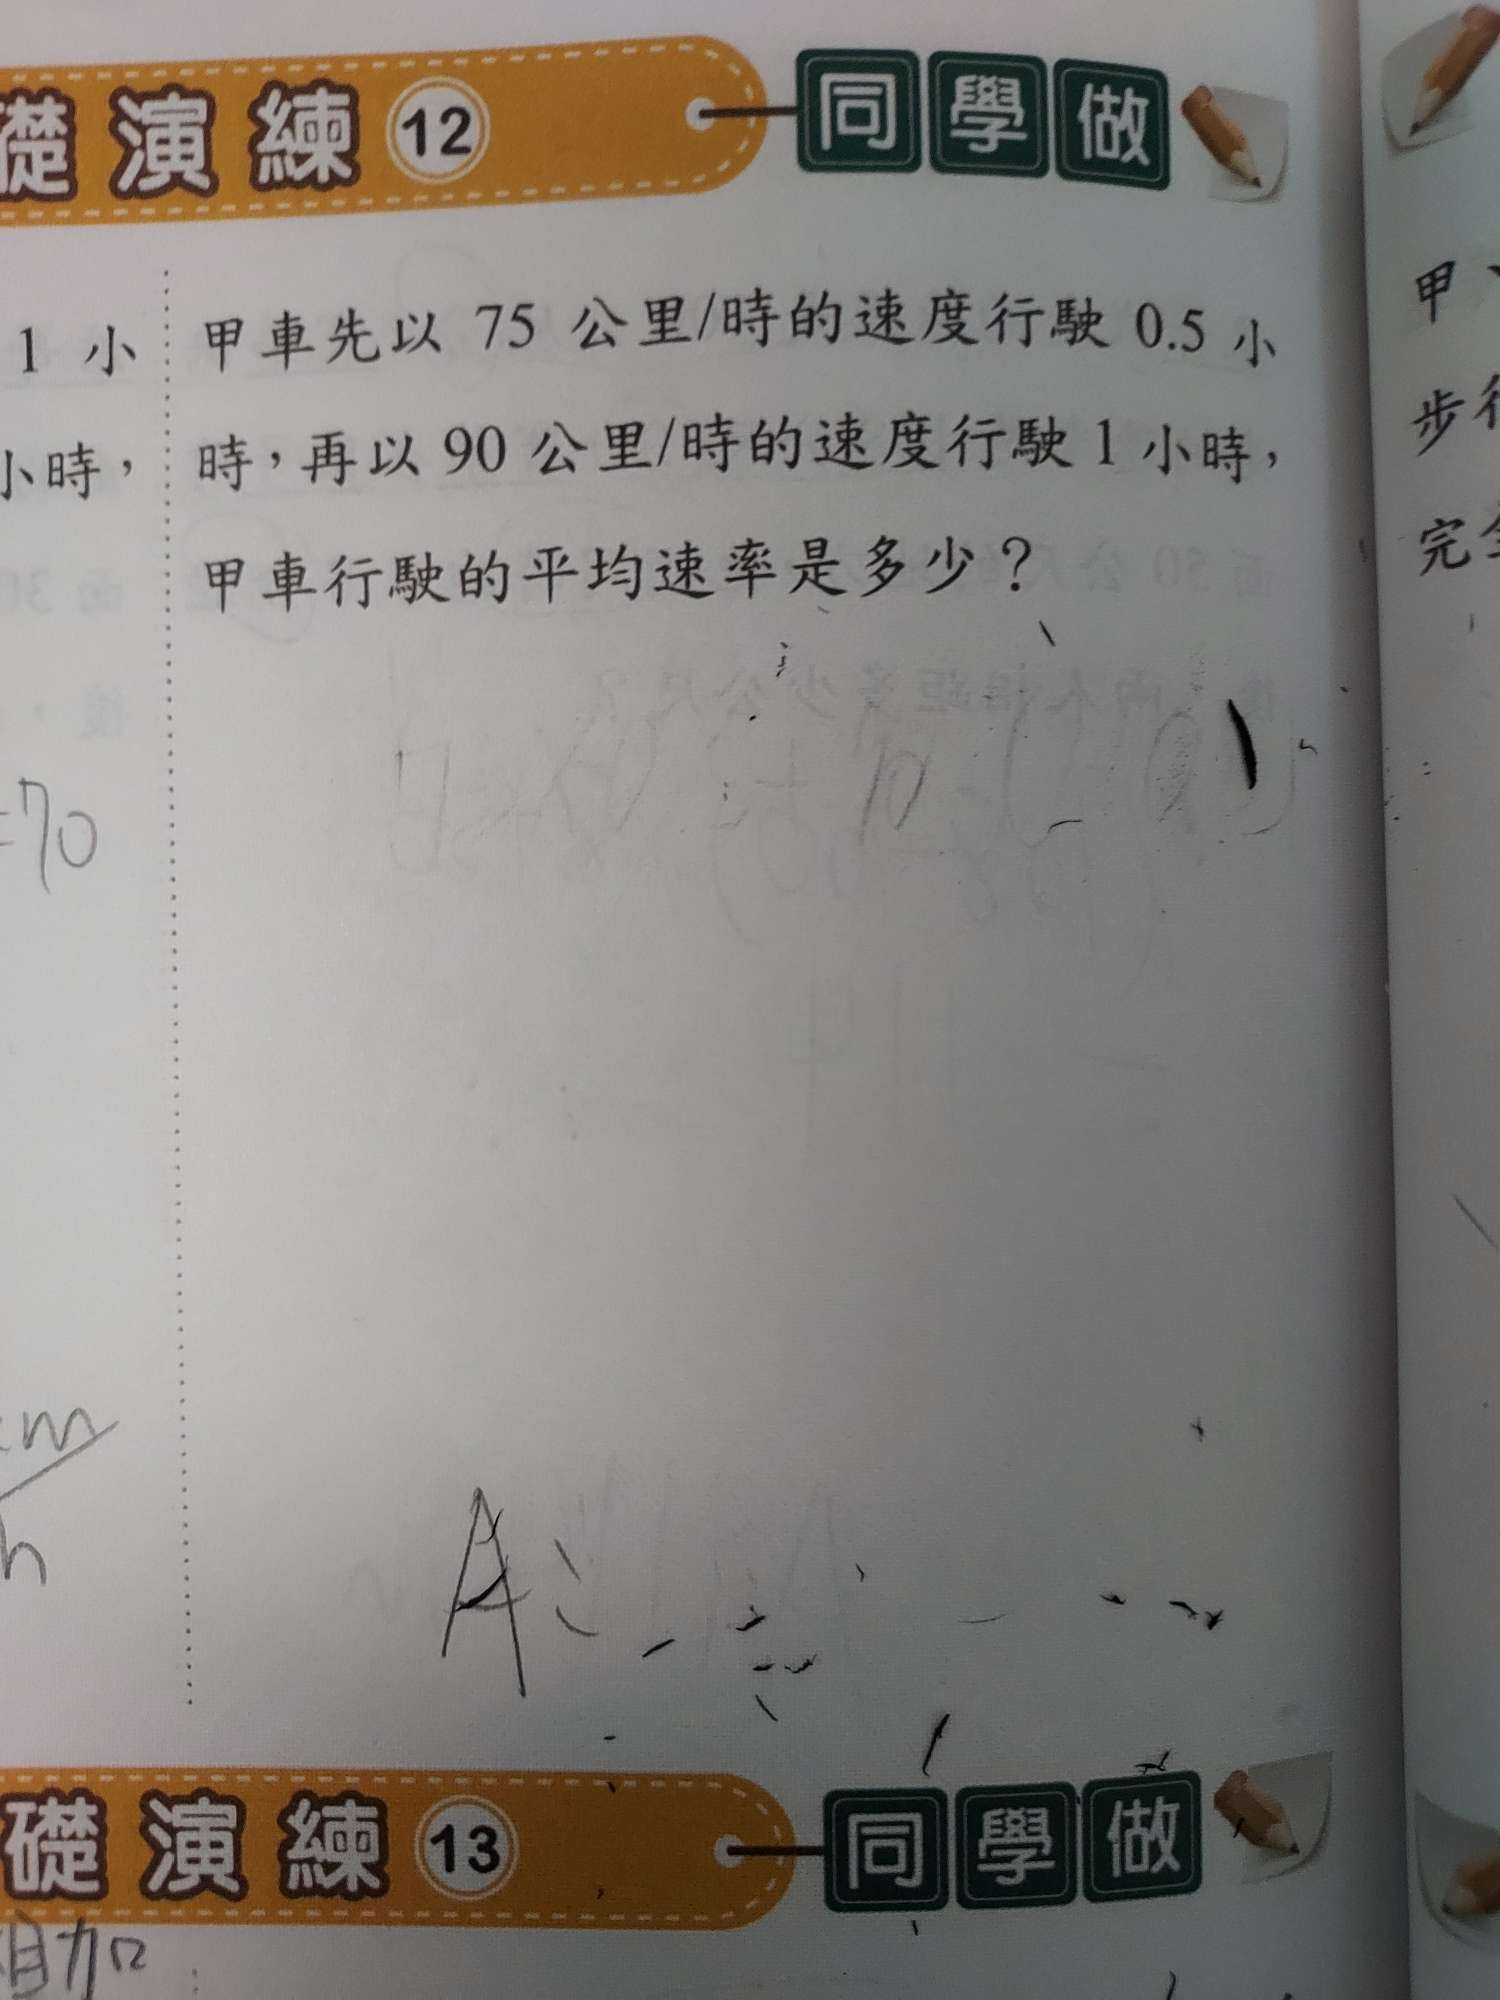 礎演練 12 同學做
1 小
小時，
=70
m
h
甲車先以 75 公里/時的速度行駛 0.5 小
時，再以 90 公里/時的速度行駛 1 小時，
甲車行駛的平均速率是多少？
A：
甲、
步行
完全
礎演練 13 同學做
相加